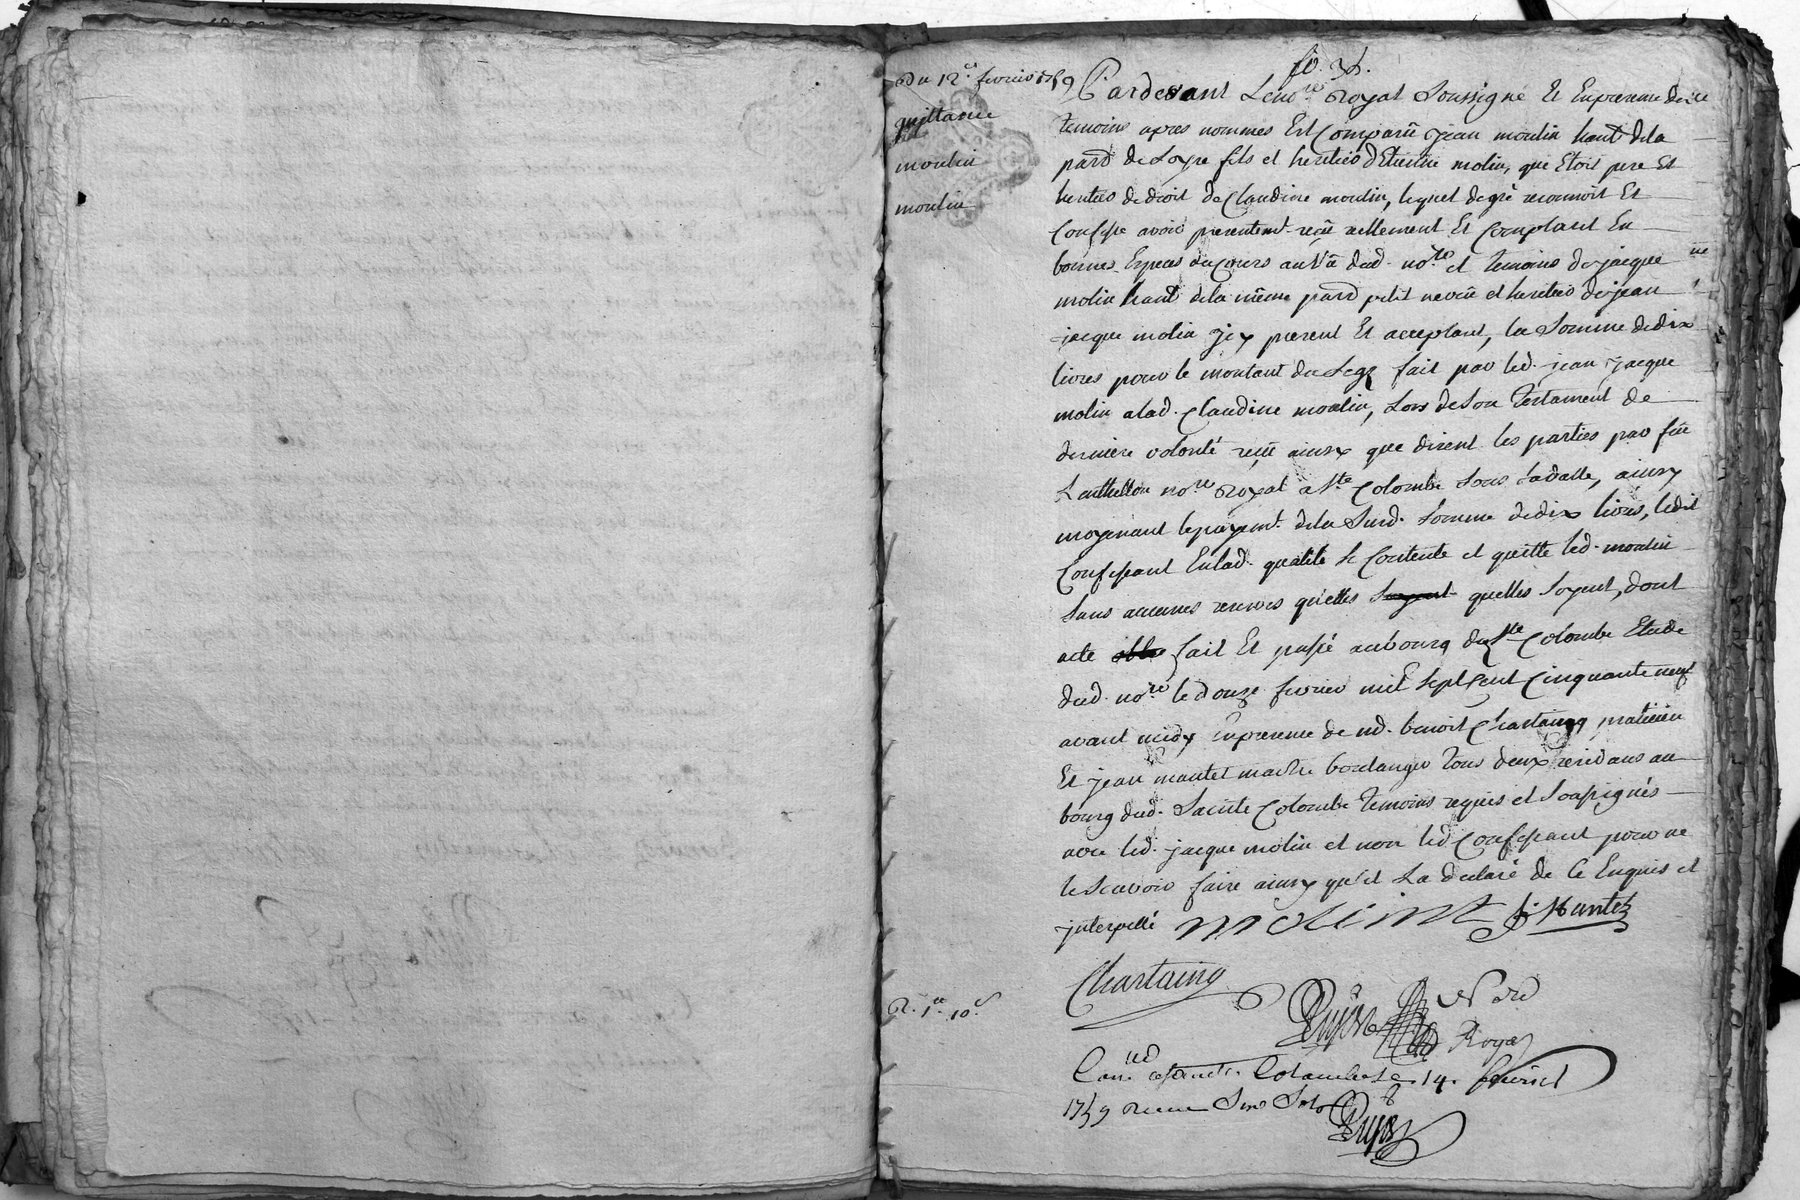 fo. 34.
Du 12e fevrier 1759
quittance
moulin
moulin
Pardevant Le nore Royal Soussigné Et En presence des
temoins apres nommes Est Comparu jean moulin hant de la
parr de fils et heritier d'Etienne molin, qui Etoit pere Et
heritier de droit de Claudine moulin, lequel de gré reconnoit Et
Confesse avoir presentemt reçû réellement Et Comptant En
bonnes Especes du Cours au vû dud. nore et temoins de jacque
molin hant de la même parr petit neveu et heritier de jean
jacque molin jcy present Et acceptant, la Somme de dix
livres pour le montant du Legz fait par led. jean jacque
molin a lad. Claudine moulin, Lors de Son Testament de
derniere volonté reçû ainsy que disent les parties par fûe
nore Royal a Ste Colombe Sous ainsy
moyenant le payemt de la Susd. Somme de dix livres, ledit
Confessant En lad. qualité Se Contente et quitte led. moulin
Sans aucunes reserves qu'elles quelles Soyent, dont
acte fait Et passé au bourg de Ste Colombe Etude
dud. nore le douze fevrier mil Sept Cent Cinquante neuf
avant midy En presence de md. benoit Chartaing praticien
Et jean mantet maitre boulanger tous deux residans au
bourg dud. Sainte Colombe temoins requis et Soussignés
avec led. jacque molin et non led Confessant pour ne
le Scavoir faire ainsy qu'il La declaré de Ce Enquis et
jnterpellé molint J. Mantet
Chartaing
Royal
R. 1re 10s
Conlle a Sainte Colombe Le 14. fevrier
1759 Receu